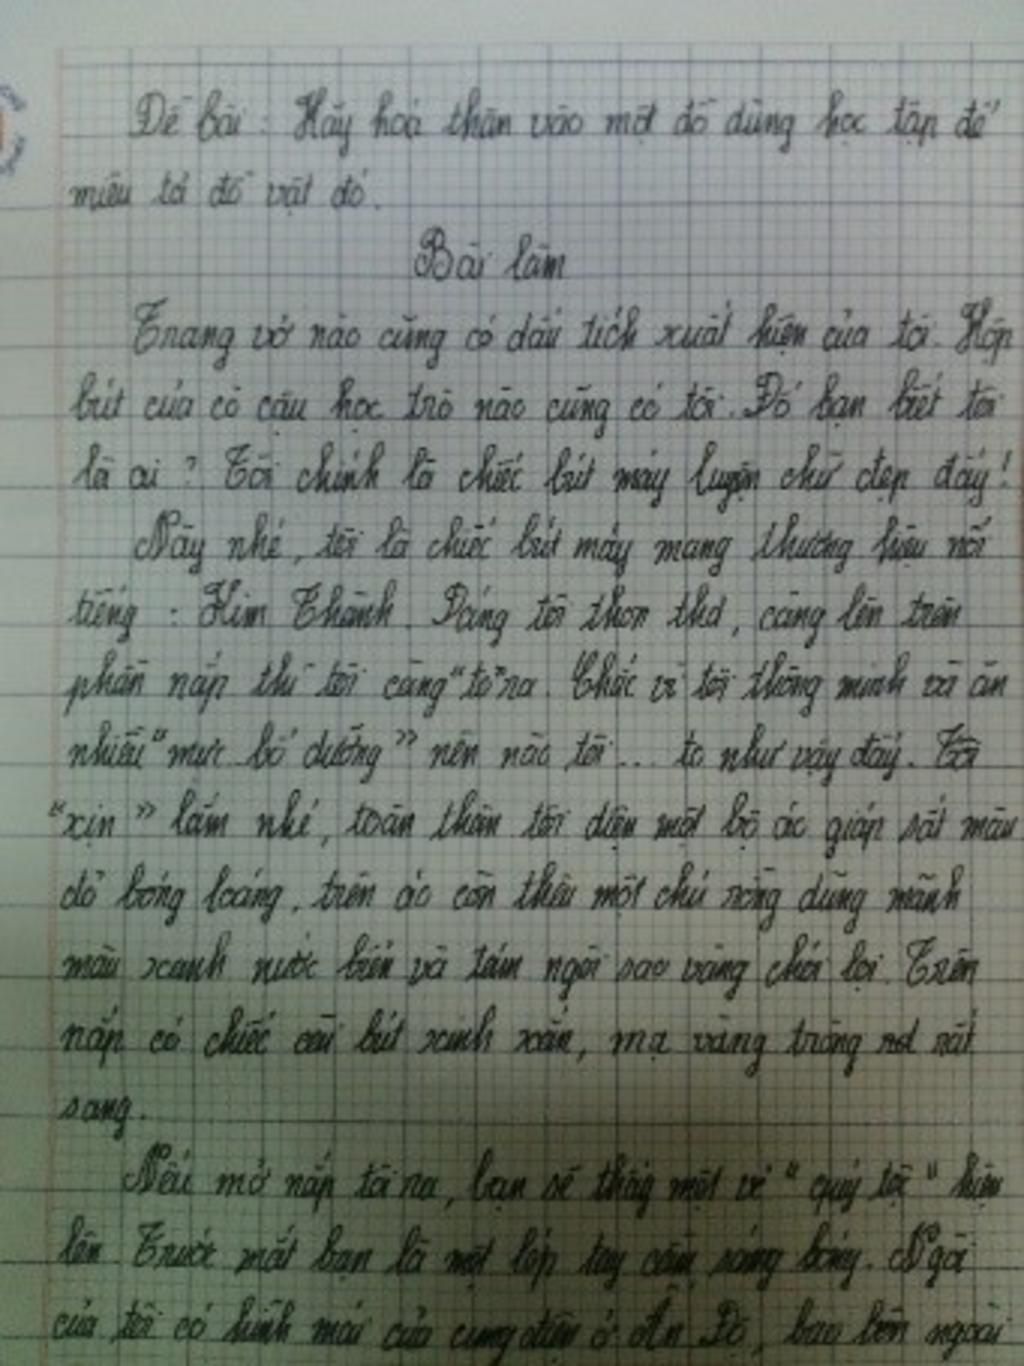 Đề bài : Hãy hoá thân vào một đồ dùng học tập để
miêu tả đồ vật đó.
Bài làm
Trang vở nào cũng có dấu tích xuất hiện của tôi. Hộp
bút của cô cậu học trò nào cũng có tôi. Đố bạn biết tôi
là ai ? Tôi chính là chiếc bút máy luyện chữ đẹp đấy!
Này nhé, tôi là chiếc bút máy mang thương hiệu nổi
tiếng : Kim Thành. Dáng tôi thon thả, càng lên trên
phần nắp thì tôi càng "to" ra. Chắc vì tôi thông minh và ăn
nhiều "mực bổ dưỡng" nên não tôi ... to như vậy đấy. Tôi
"xịn" lắm nhé, toàn thân tôi diện một bộ áo giáp sắt màu
đỏ bóng loáng, trên áo còn thêu một chú rồng dũng mãnh
màu xanh nước biển và tám ngôi sao vàng chói lọi. Trên
nắp có chiếc cài bút xinh xắn, mạ vàng trông rất
sang.
Nếu mở nắp tôi ra, bạn sẽ thấy một vẻ "quý tộc" hiện
lên. Trước mắt bạn là một lớp tay cầm sáng bóng. Ngòi
của tôi có hình mái của cung điện ở Ấn Độ, bao bên ngoài